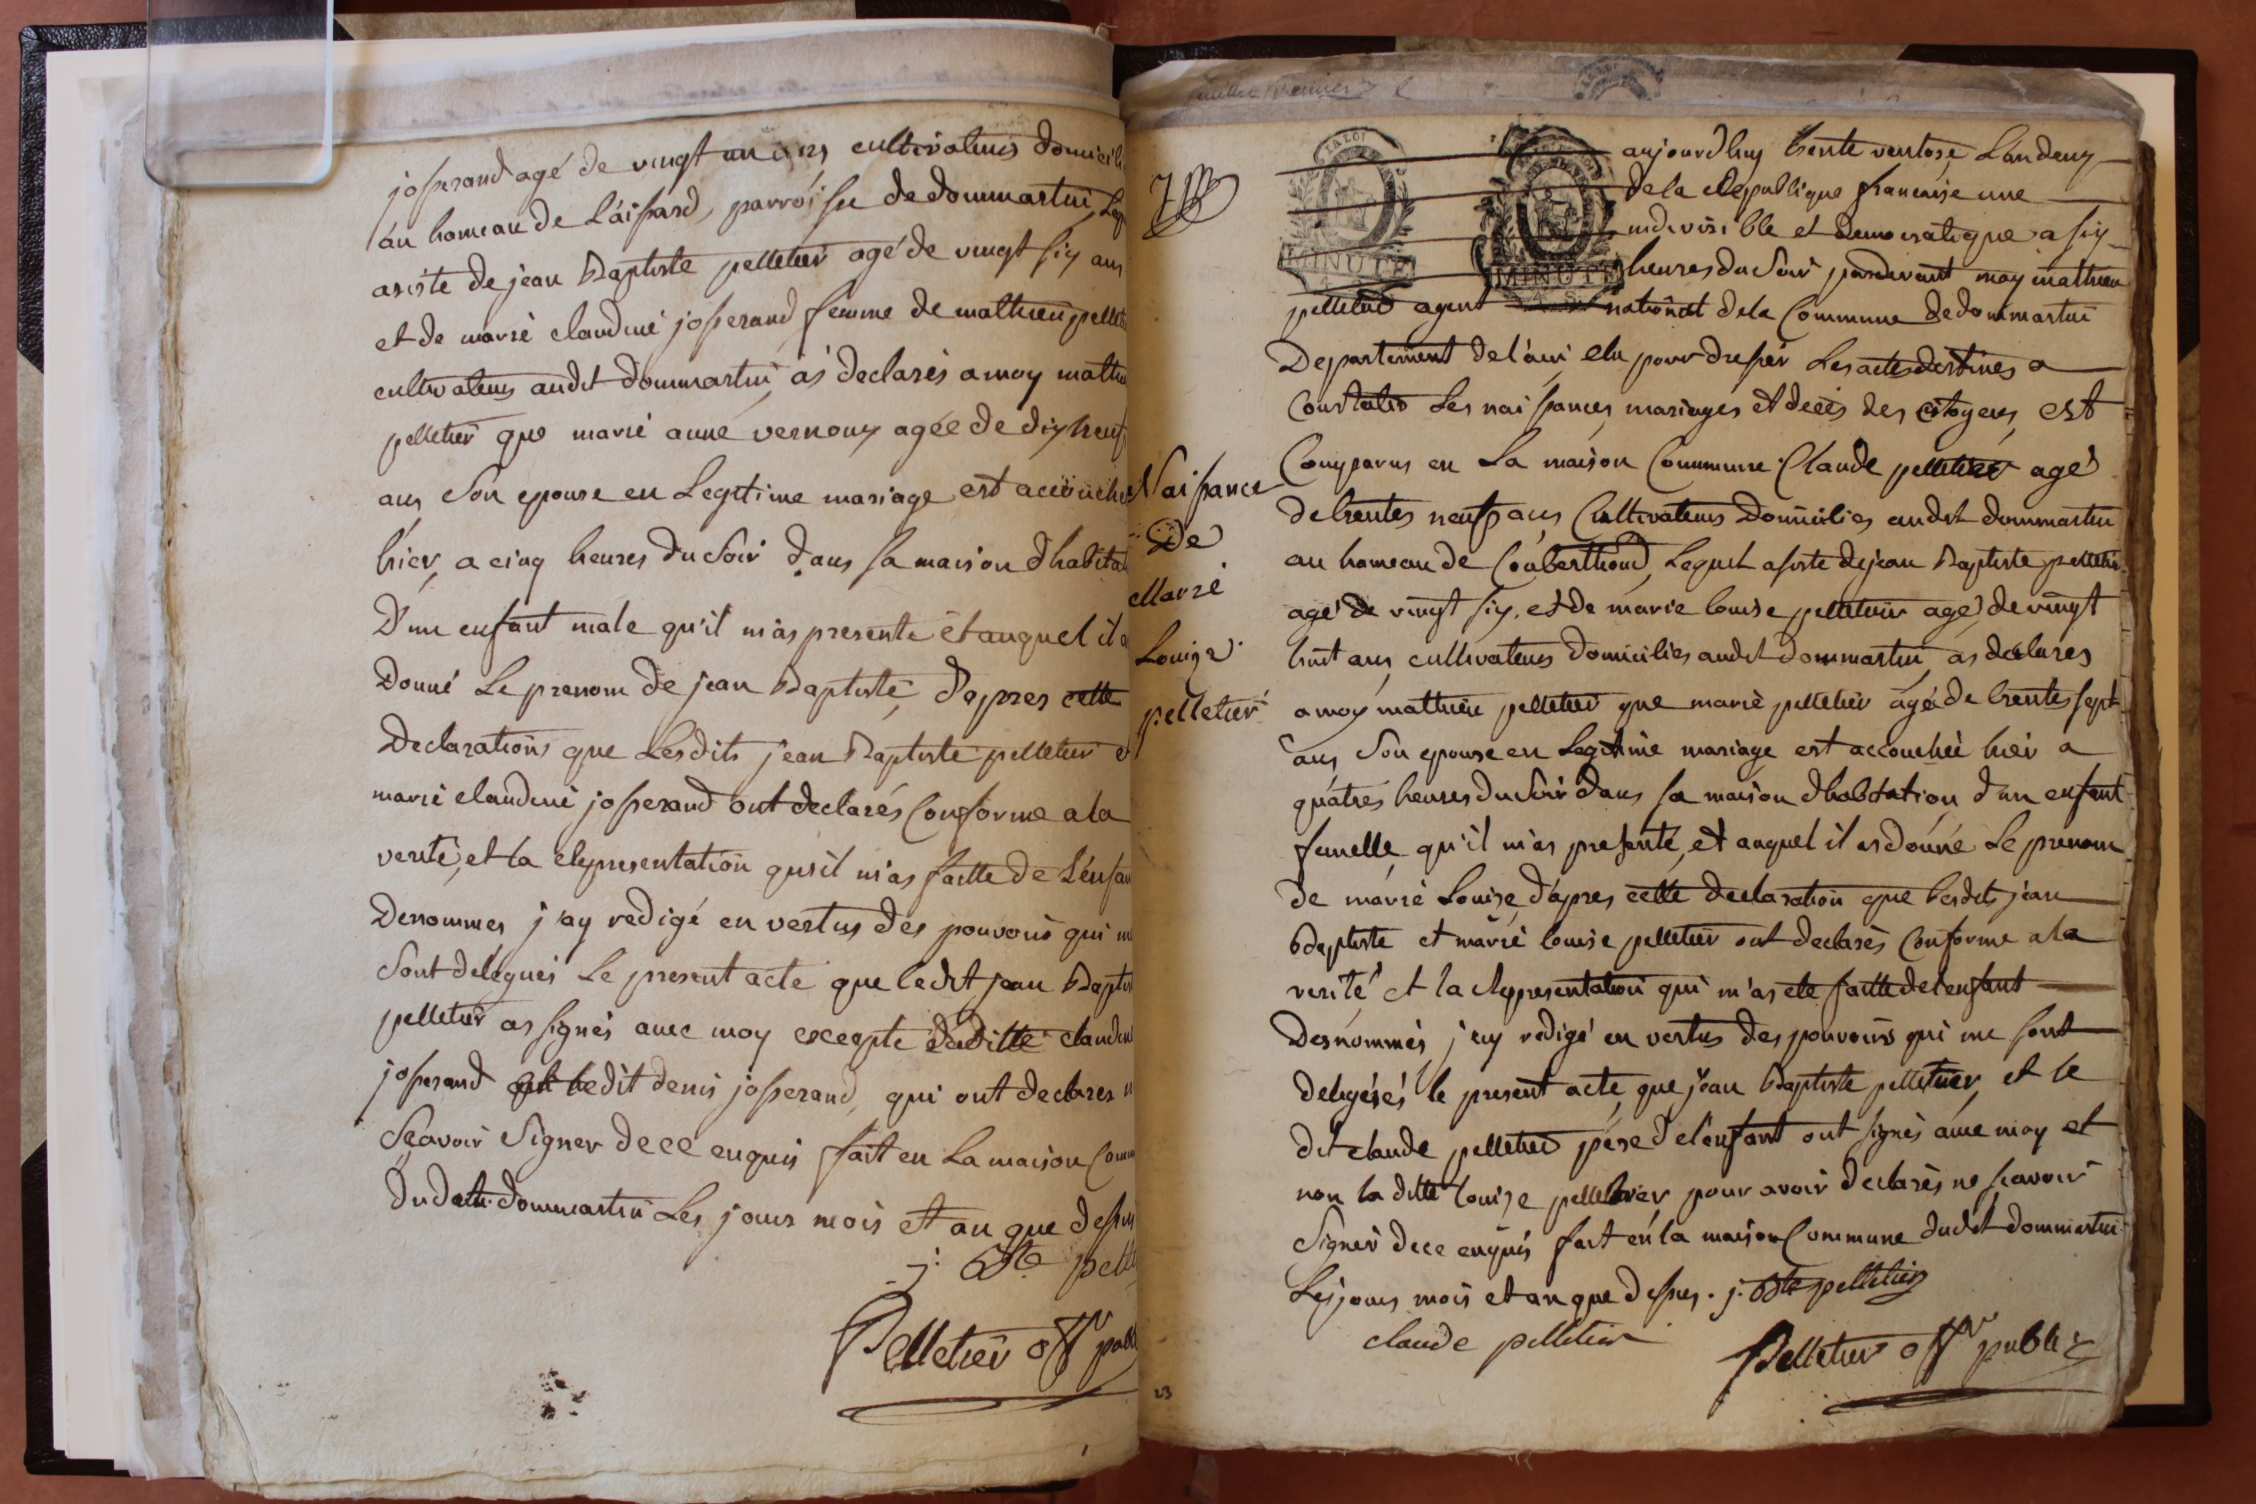 josserand agé de vingt un ans cultivateurs domicili
au hameau de Laissard, parroisse de dommartin, Leq
asisté de jean Baptiste pelletier agé de vingt six ans
et de marie claudine josserand femme de mathieu pelleti
cultivateurs audit dommartin as declarés a moy mathi
pelletier que marie anne vernoux agée de dix neuf
ans son epouse en Legitime mariage est accouché
hier, a cinq heures du soir dans sa maison d'habitat
D'un enfant male qu'il m'as presenté et auquel il a
Donné Le prenom de jean Baptiste, d'apres cette
Declaration que Lesdits jean Baptiste pelletier et
marie claudine josserand ont declarés Conforme a la
verité, et la Representation qu'il m'as faitte de L'enfan
Denommes j'ay redigé en vertus des pouvoirs qui m
sont delegués Le present acte que ledit jean Baptist
pelletier as signés avec moy excepte laditte claudin
josserand et ledit denis josserand, qui ont declares n
sçavoir signer de ce enquis fait en La maison Comm
dudit dommartin Les jours mois et an que dessus
j. Bte pelle
Pelletier offr publ
feuillet dernier
Naissance
De
Marie
Louise
pelletier
LA LOI
MINUTE
MINUTE
aujourdhuy trente ventose L'an deux
de la Republique francaise une
indivisible et democratique a six
heures du soir pardevant moy mathieu
pelletier agent national de la Commune de dommartin
Departement de l'ain, elu pour dresser Les actes destinés a
Constater Les naissances, mariages et decès des citoyens, est
Comparus en La maison Commune Claude pelletier agé
de trentes neuf ans Cultivateurs Domiciliés audit dommartin
au hameau de Couberthoud, Lequel asisté de jean Baptiste pelletier
agé de vingt six, et de marie louise pelletier agé de vingt
huit ans, cultivateurs domiciliés audit dommartin, as declares
a moy mathieu pelletier que marie pelletier agé de trentes sept
ans son epouse en Legitime mariage est accouchée hier a
quatres heures du soir dans sa maison d'habitation d'un enfant
femelle qu'il m'as presenté, et auquel il as donné Le prenom
de marie Louise d'apres cette declaration que Lesdits jean
Baptiste et marie louise pelletier ont declarés Conforme a la
verité et la Representation qui m'as ete faitte de l'enfant
Desnommés j'ay redigé en vertus des pouvoirs qui me sont
delegésés le present acte, que jean Baptiste pelletier, et le
dit claude pelletier père de l'enfant ont signés avec moy et
non la ditte louise pelletier pour avoir declarés ne scavoir
Signer de ce enquis fait en la maison Commune dudit dommartin
Les jours mois et an que dessus. j. Bte pelletier
claude pelletier
Pelletier offr public
23